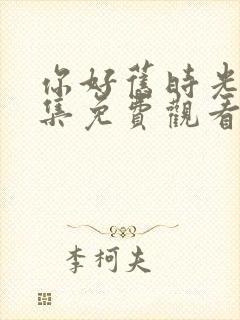 你好舊時光
集免費觀看
李柯夫